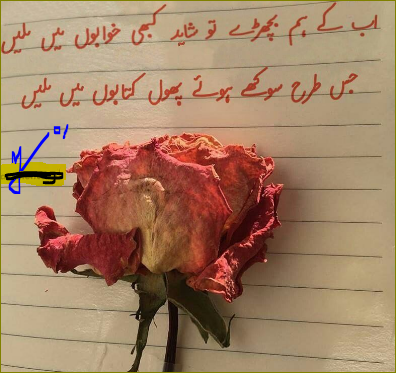 اب کے ہم بچھڑے تو شاید کبھی خوابوں میں ملیں
جس طرح سوکھے ہوئے پھول کتابوں میں ملیں